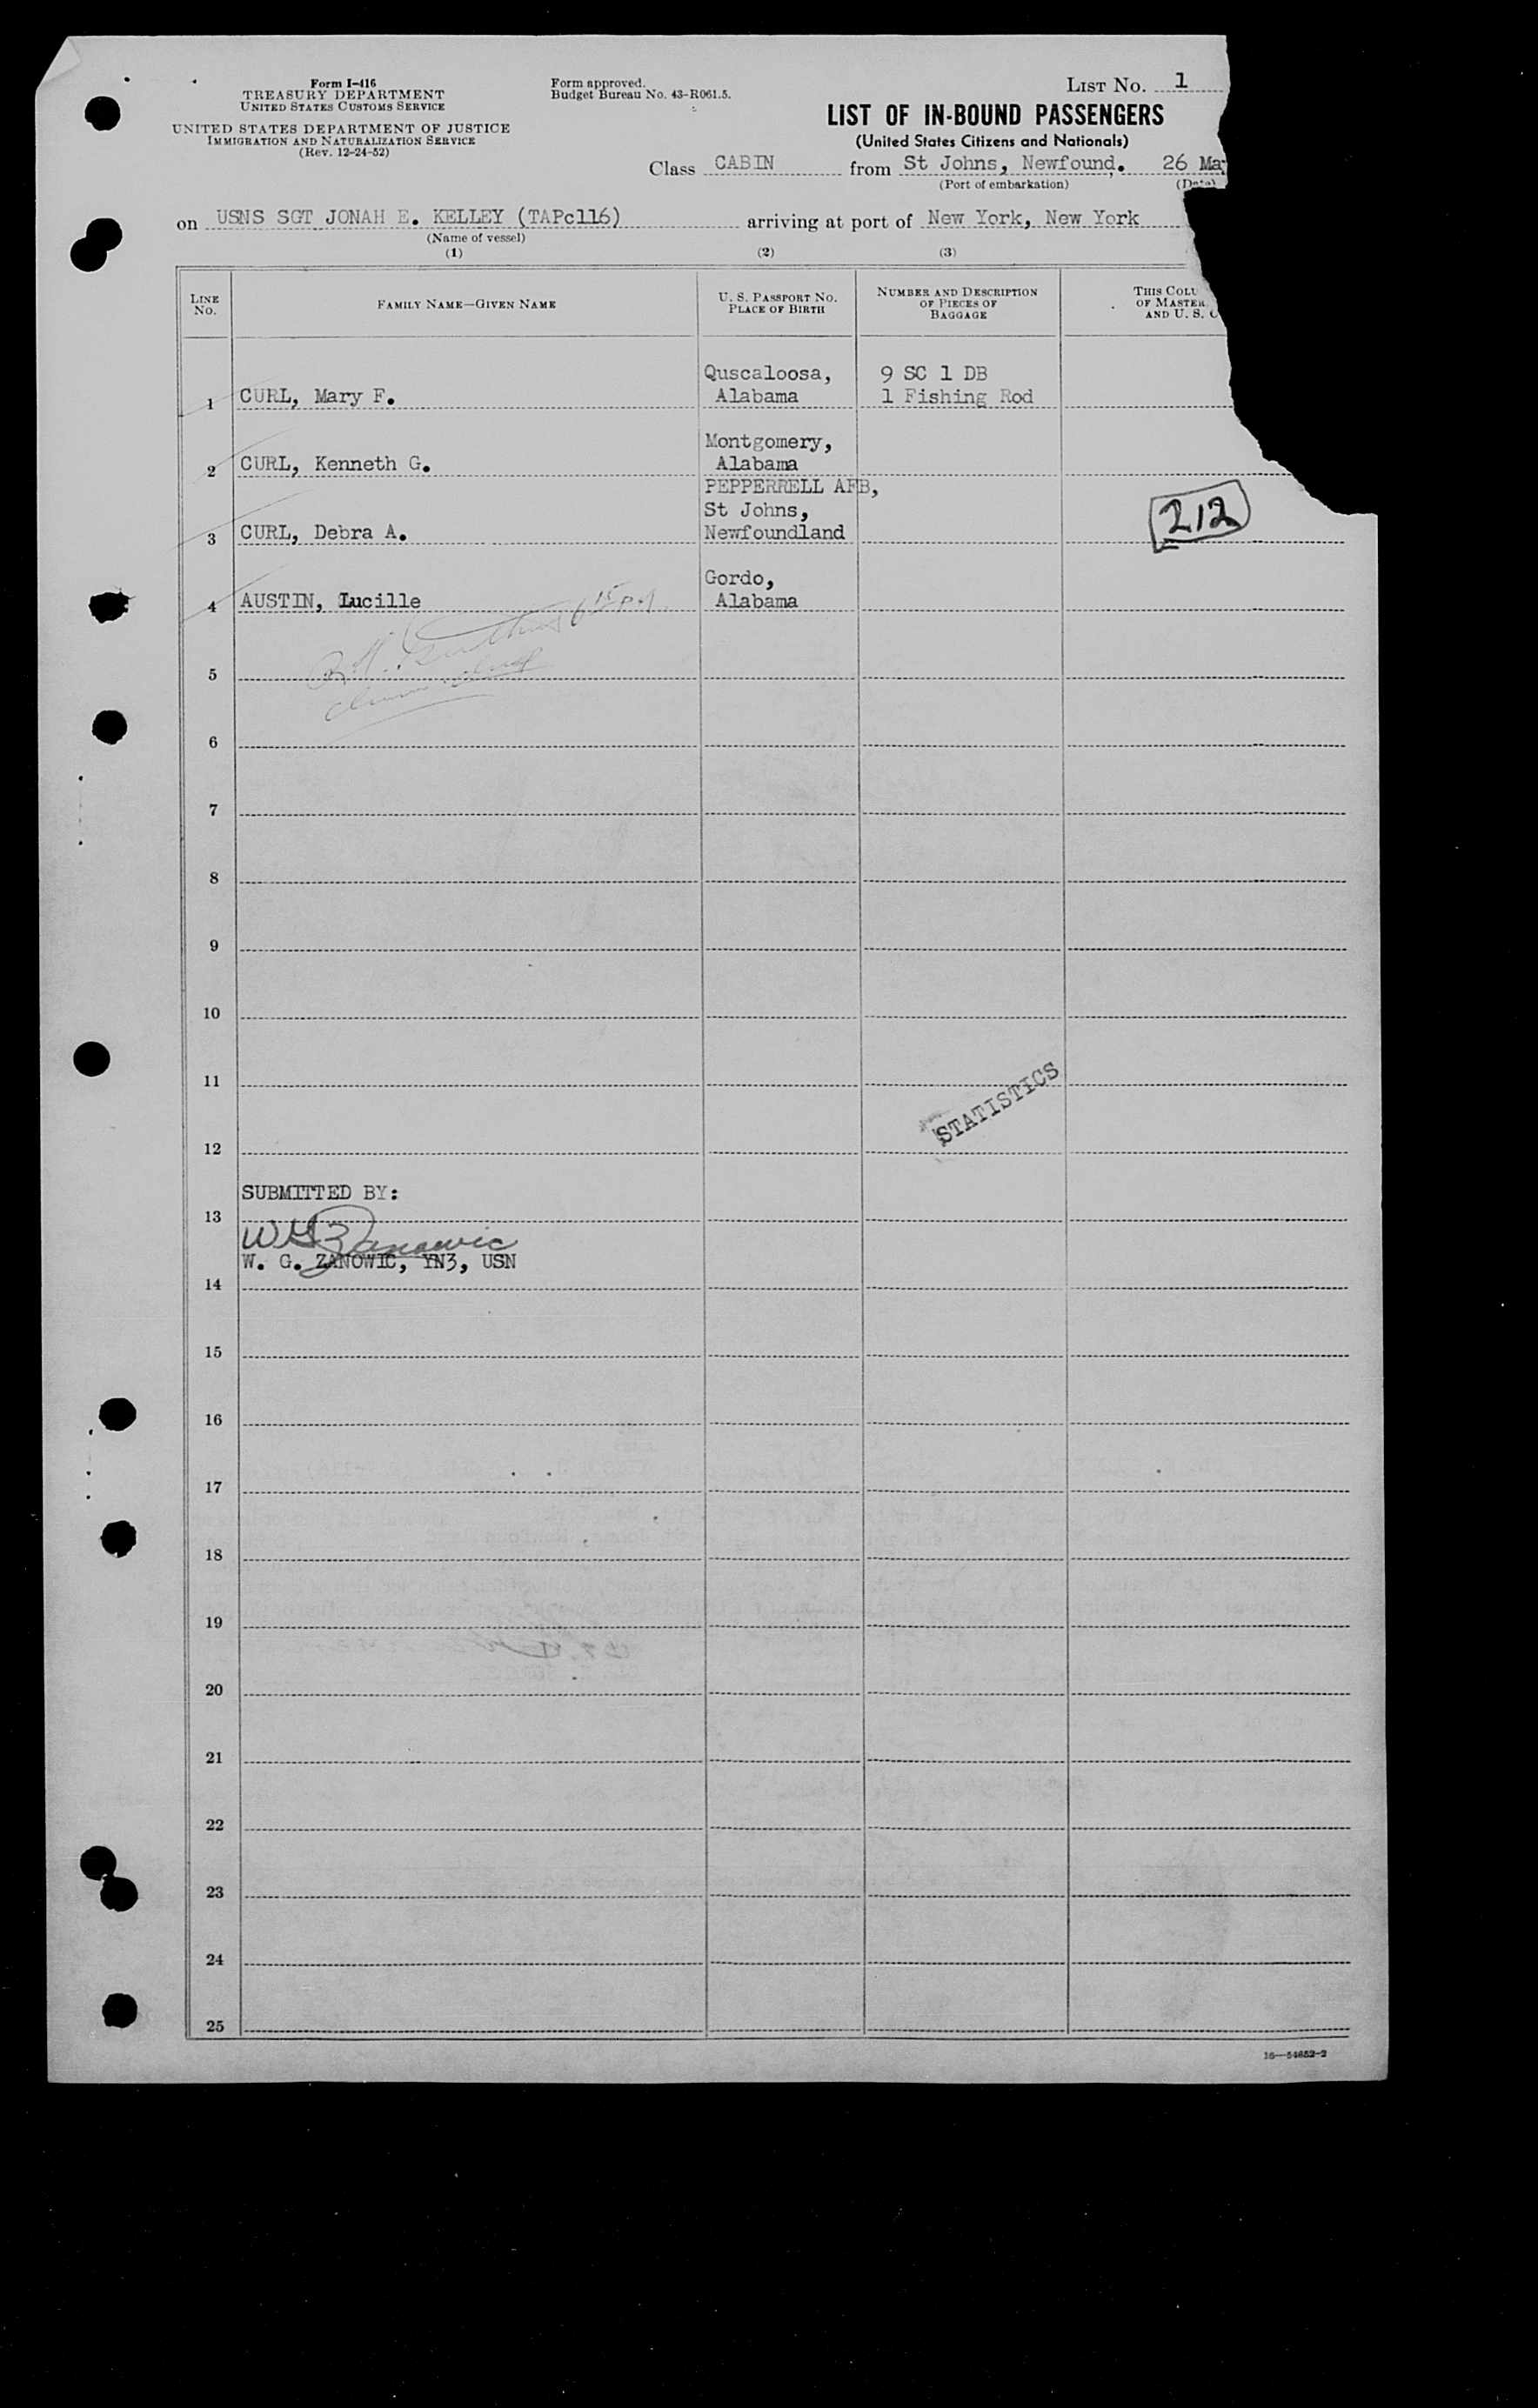 Form I-416
TREASURY DEPARTMENT
UNITED STATES CUSTOMS SERVICE
UNITED STATES DEPARTMENT OF JUSTICE
IMMIGRATION AND NATURALIZATION SERVICE
(Rev. 12-24-52)
Form approved.
Budget Bureau No. 43-R061.5.
LIST NO. 1
LIST OF IN-BOUND PASSENGERS
(United States Citizens and Nationals)
Class CABIN from St Johns, Newfound. 26 Ma
(Port of embarkation) (Date)
on USNS SGT JONAH E. KELLEY (TAPc116) arriving at port of New York, New York
(Name of vessel)
(1) (2) (3)
LINE NO.
FAMILY NAME—GIVEN NAME
U. S. PASSPORT NO.
PLACE OF BIRTH
NUMBER AND DESCRIPTION
OF PIECES OF
BAGGAGE
THIS COLU
OF MASTER
AND U. S. C
1 CURL, Mary F. Quscaloosa, Alabama 9 SC 1 DB 1 Fishing Rod
2 CURL, Kenneth G. Montgomery, Alabama
3 CURL, Debra A. PEPPERRELL AFB, St Johns, Newfoundland
212
4 AUSTIN, Lucille Gordo, Alabama
5
6
7
8
9
10
11
STATISTICS
12
SUBMITTED BY:
13
W G Zanowic
W. G. ZANOWIC, YN3, USN
14
15
16
17
18
19
20
21
22
23
24
25
16—54652-2